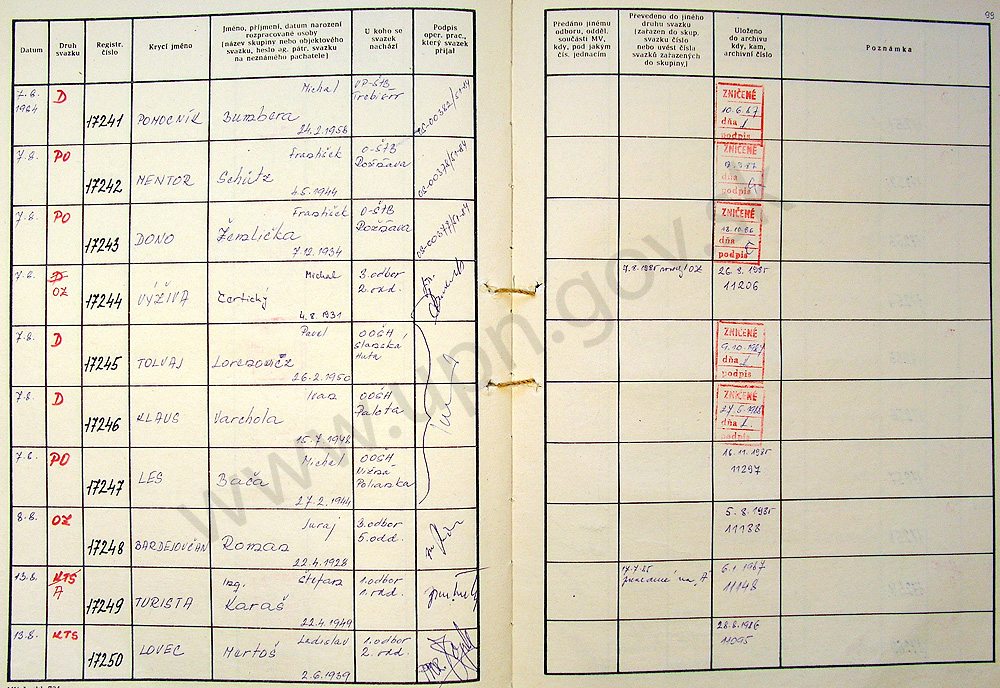 99
Datum
Druh
svazku
Registr.
číslo
Krycí jméno
Jméno, příjmení, datum narození
rozpracované osoby
(název skupiny nebo objektového
svazku, heslo ag. pátr. svazku
na neznámého pachatele)
U koho se
svazek
nachází
Podpis
oper. prac.,
který svazek
přijal
Předáno jinému
odboru, odděl.
součásti MV,
kdy, pod jakým
čís. jednacím
Převedeno do jiného
druhu svazku
(zařazen do skup.
svazku číslo
nebo uvést čísla
svazků zařazených
do skupiny)
Uloženo
do archivu
kdy, kam,
archivní číslo
Poznámka
7.8.
1984
D
17241
POMOCNÍK
Michal
Bumbera
24.2.1956
ZNIČENÉ
10.6.87
dňa
podpis
7.8.
PO
17242
MENTOR
František
Schütz
4.5.1944
O-ŠTB
Rožňava
ZNIČENÉ
dňa
podpis
7.8.
PO
17243
DONO
František
Žemlička
7.12.1934
O-ŠTB
Rožňava
ZNIČENÉ
18.10.86
dňa
podpis
7.8.
D
OZ
17244
VÝŽIVA
Michal
Čertický
4.8.1931
3.odbor
2.odd.
26.8.1985
11206
7.8.
D
17245
TOLVAJ
Pavel
Lorenzovič
26.2.1950
OOSH
Slanská
Huta
ZNIČENÉ
9.10.1987
dňa
podpis
7.8.
D
17246
KLAUS
Ivan
Varchola
15.7.1948
OOSH
Palota
ZNIČENÉ
27.5.1988
dňa
podpis
7.8.
PO
17247
LES
Michal
Bača
27.2.1944
OOSH
Nižná
Polianka
16.11.1985
11297
8.8.
OZ
17248
BARDEJOVČAN
Juraj
Roman
22.4.1928
3.odbor
5.odd.
5.8.1985
11188
13.8.
KTS
A
17249
TURISTA
Ing. Štefan
Karaš
22.4.1949
1.odbor
1.odd.
17.7.85
6.1.1987
11148
13.8.
KTS
17250
LOVEC
Ladislav
Martoš
2.6.1939
1.odbor
2.odd.
28.8.1986
11095
www.upn.gov.sk